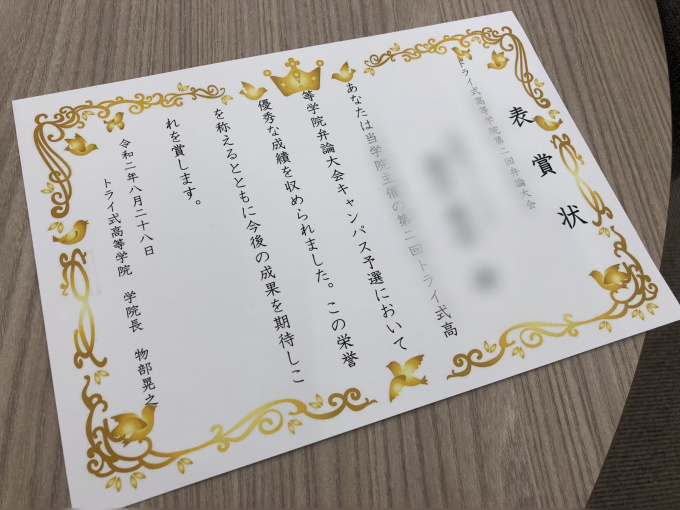 表賞状
トライ式高等学院第二回弁論大会
あなたは当学院主催の第二回トライ式高
等学院弁論大会キャンパス予選において
優秀な成績を収められました。この栄誉
を称えるとともに今後の成果を期待しこ
れを賞します。
令和二年八月二十八日
トライ式高等学院 学院長 物部晃之